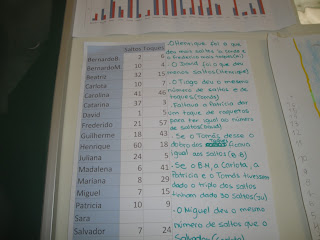 Saltos Toques
BernardoB 3 6
BernardoM 10 4
Beatriz 32 15
Carlota 10 7
Carolina 41 46
Catarina 37 3
David 1 5
Frederido 21 57
Guilherme 18 43
Henrique 60 18
Juliana 24 5
Madalena 6 41
Mariana 8 29
Miguel 7 15
Patricia 10 9
Sara
Salvador 7 24
-O Henrique foi o que
deu mais saltos
o Frederico mais toques
- O David foi o que deu
menos saltos (Henrique)
- O Tiago deu o mesmo
número de saltos e de
toques (Tomás)
- Faltava à Patrícia dar
um toque de raquetes
para ter igual ao número
de saltos
- Se o Tomás desse o
dobro dos toques ficava
igual aos saltos (B B)
- Se o B.M, a Carlota, a
Patrícia e o Tomás tivessem
dado o triplo dos saltos
tinham dado 30 saltos (JU)
- O Miguel deu o mesmo
número de saltos que o
Salvador